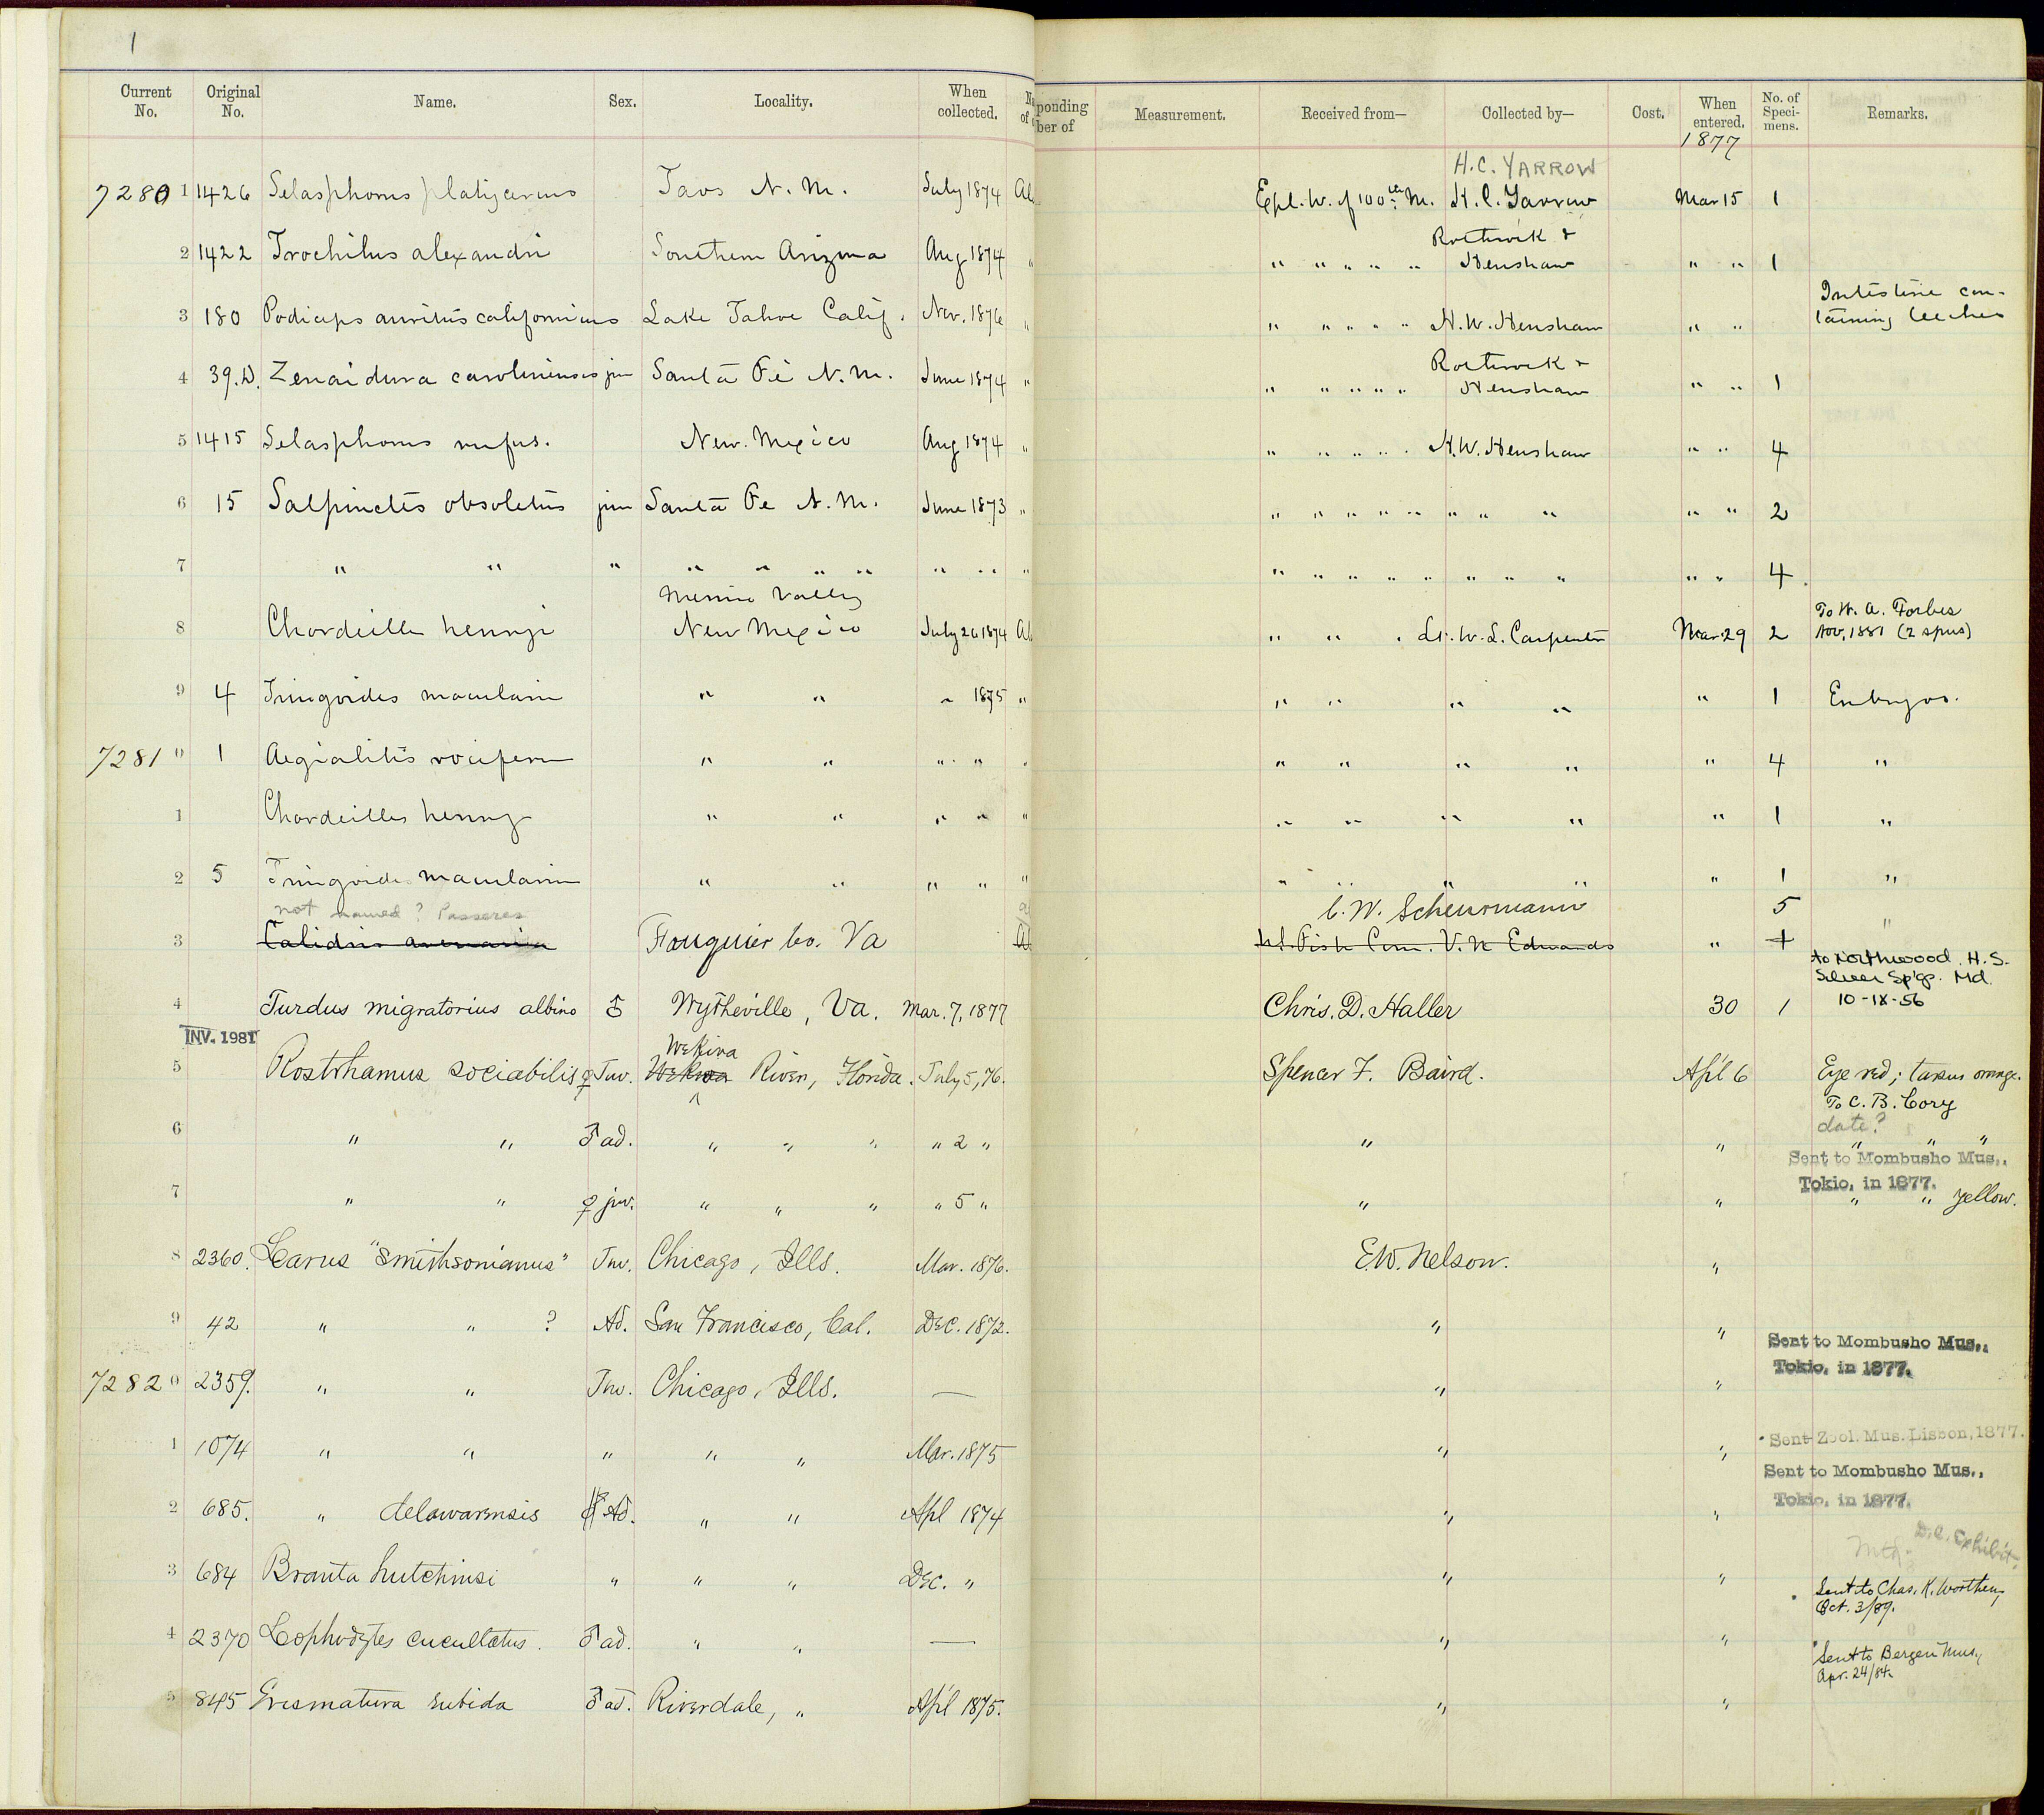 1
Current No. Original No. Name. Sex. Locality. When collected. ponding ber of Measurement. Received from— Collected by— Cost. When entered. No. of Specimens. Remarks.
1877
H.C. YARROW
7280 1 1426 Selasphorus platycercus Taos N. M. July 1874 Al Expl. W. of 100th M. H. C. Yarrow Mar 15 1
Rothrock &
2 1422 Trochilus alexandri Southern Arizona Aug 1874 " " " " " " Henshaw " " 1
Intestine con-
3 180 Podiceps auritus californicus Lake Tahoe Calif. Nov. 1876 " " " " " " H. W. Henshaw " " taining leeches
Rothrock &
4 39.D. Zenaidura carolinensis juv Santa Fé N. M. June 1874 " " " " " " Henshaw " " 1
5 1415 Selasphorus rufus. New. Mexico Aug 1874 " " " " " " H. W. Henshaw " " 4
6 15 Salpinctes obsoletus juv Santa Fe N. M. June 1873 " " " " " " " " " " " 2
7 " " " " " " " " " " " " " " " " " " " " 4
Valley
8 Chordeilles henryi New Mexico July 20 1874 Al " " " Lt. W. L. Carpenter Mar 29 2 To W. A. Forbes
Nov, 1881 (2 spms)
9 4 Tringoides macularia " " " 1875 " " " " " " 1 Embryos.
7281 0 1 Aegialitis vocifera " " " " " " " " " 4 "
1 Chordeilles henryi " " " " " " " " " " 1 "
2 5 Tringoides macularia " " " " " " " " " " 1 "
not named? Passeres C. W. Scheurmann 5
3 Calidris arenaria Fouquier Co. Va Al U.S. Fish Com. V. N Edwards " 1 "
to Northwood. H.S.
Silver Sp'gs. Md.
4 Turdus migratorius albino ♂ Wytheville, Va. Mar. 7, 1877 Chris. D. Haller 30 1 10-IX-56
INV. 1981
Wekiva
5 Rostrhamus sociabilis ♀ Juv. River, Florida. July 5, 76. Spencer F. Baird. Apl 6 Eye red; tarsus orange.
To C. B. Cory
date?
6 " " ♂ ad. " " " " 2 " " " " " "
Sent to Mombusho Mus.,
Tokio, in 1877.
7 " " ♀ juv. " " " " 5 " " " " " yellow.
8 2360. Larus "Smithsonianus" Juv. Chicago, Ills. Mar. 1876. E. W. Nelson. "
9 42 " " ? Ad. San Francisco, Cal. Dec. 1872. " "
Sent to Mombusho Mus.,
Tokio, in 1877.
7282 0 2359. " " Juv. Chicago, Ills. — " "
Sent Zool. Mus. Lisbon, 1877.
1 1074 " " " " " Mar. 1875 " "
Sent to Mombusho Mus.,
Tokio, in 1877.
2 685. " delawarensis Ad. " " Apl 1874 " "
D.C. Exhibit.
Mtd.
3 684 Branta hutchinsi " " " Dec. " " "
Sent to Chas. K. Worthen,
Oct. 3/89.
4 2370 Lophodytes cucullatus. ♂ ad. " " — " "
Sent to Bergen Mus.,
Apr. 24/84
5 845 Erismatura rubida ♂ ad. Riverdale, " Apl 1875. " "